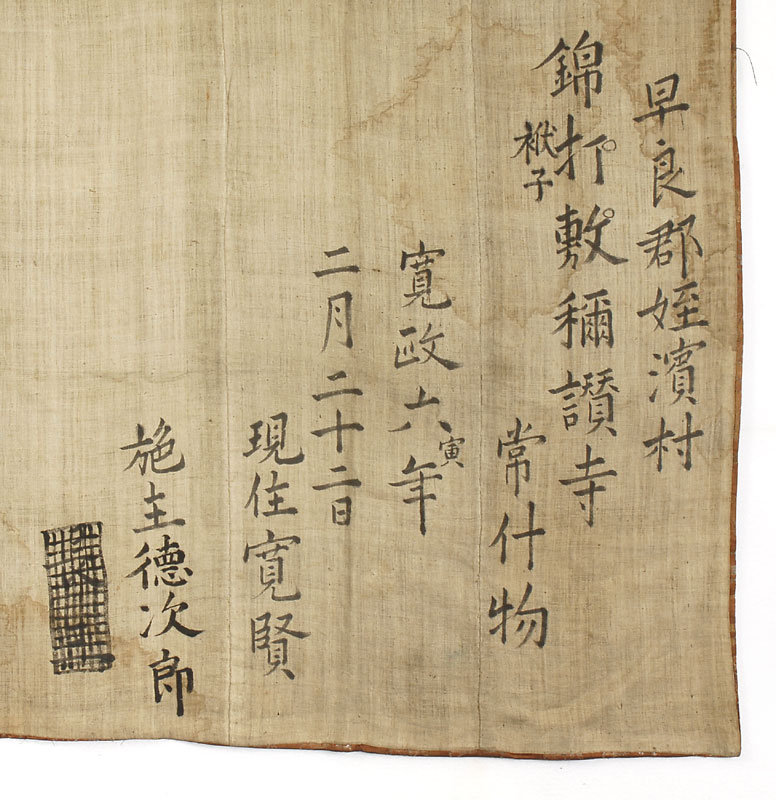 早良郡姪濱村
錦打敷稱讃寺
袱子
常什物
寛政六寅年
二月二十二日
現住寛賢
施主德次郎